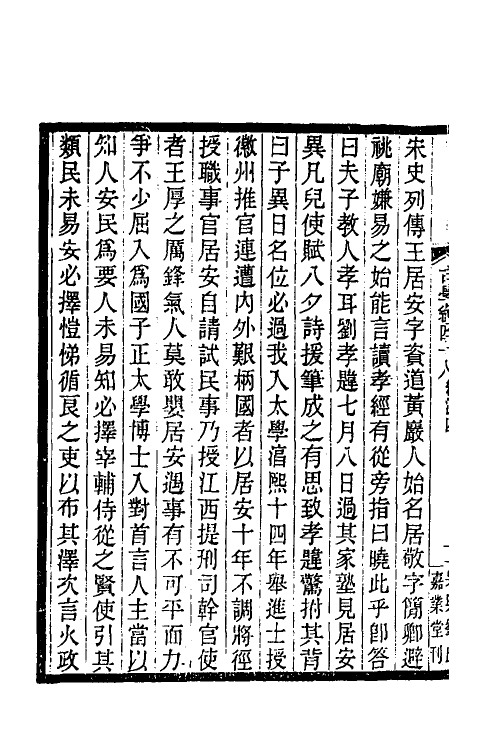 宋史列傳王居安字資道黃巖人始名居敬字簡卿避
祧廟嫌易之始能言讀孝經有從旁指曰曉此乎卽答
曰夫子教人孝耳劉孝韙七月八日過其家塾見居安
異凡兒使賦八夕詩援筆成之有思致孝韙驚拊其背
曰子異日名位必過我入太學淳熙十四年舉進士授
徽州推官連遭內外艱柄國者以居安十年不調將徑
授職事官居安自請試民事乃授江西提刑司幹官使
者王厚之厲鋒氣人莫敢嬰居安遇事有不可平而力
爭不少屈入爲國子正太學博士入對首言人主當以
知人安民爲要人未易知必擇宰輔侍從之賢使引其
類民未易安必擇愷悌循良之吏以布其澤次言火政
嘉業堂刊